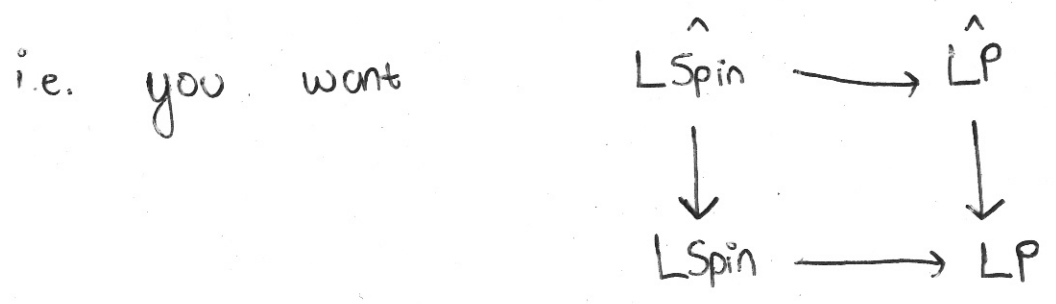 i.e. you want
^ ^
LSpin → LP
↓ ↓
LSpin → LP